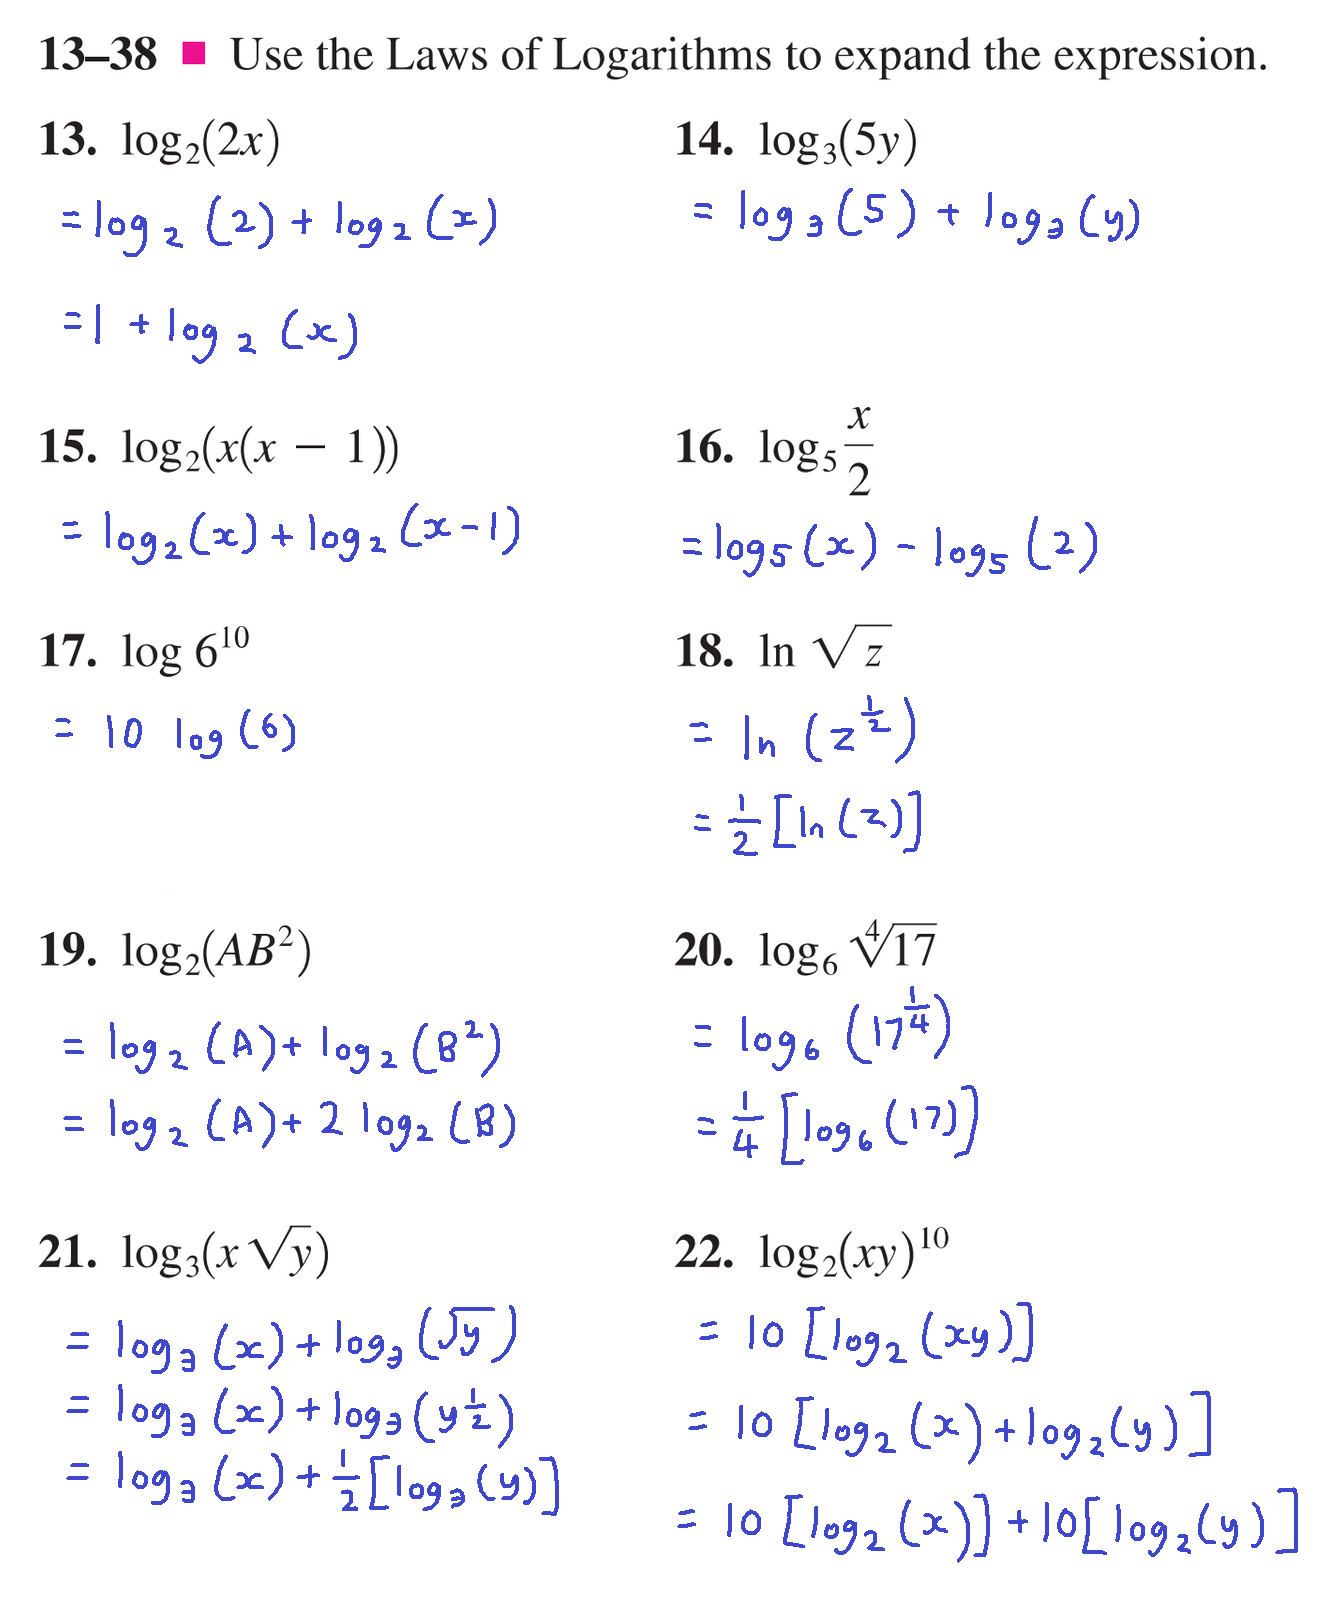 13–38 ■ Use the Laws of Logarithms to expand the expression.
13. log₂(2x)
= log₂(2) + log₂(x)
= 1 + log₂(x)
14. log₃(5y)
= log₃(5) + log₃(y)
15. log₂(x(x − 1))
= log₂(x) + log₂(x-1)
16. log₅ x/2
= log₅(x) - log₅(2)
17. log 6¹⁰
= 10 log(6)
18. ln √z
= ln (z^½)
= ½ [ln(z)]
19. log₂(AB²)
= log₂(A) + log₂(B²)
= log₂(A) + 2 log₂(B)
20. log₆ ∜17
= log₆ (17^¼)
= ¼ [log₆(17)]
21. log₃(x√y)
= log₃(x) + log₃(√y)
= log₃(x) + log₃(y^½)
= log₃(x) + ½ [log₃(y)]
22. log₂(xy)¹⁰
= 10 [log₂(xy)]
= 10 [log₂(x) + log₂(y)]
= 10 [log₂(x)] + 10 [log₂(y)]